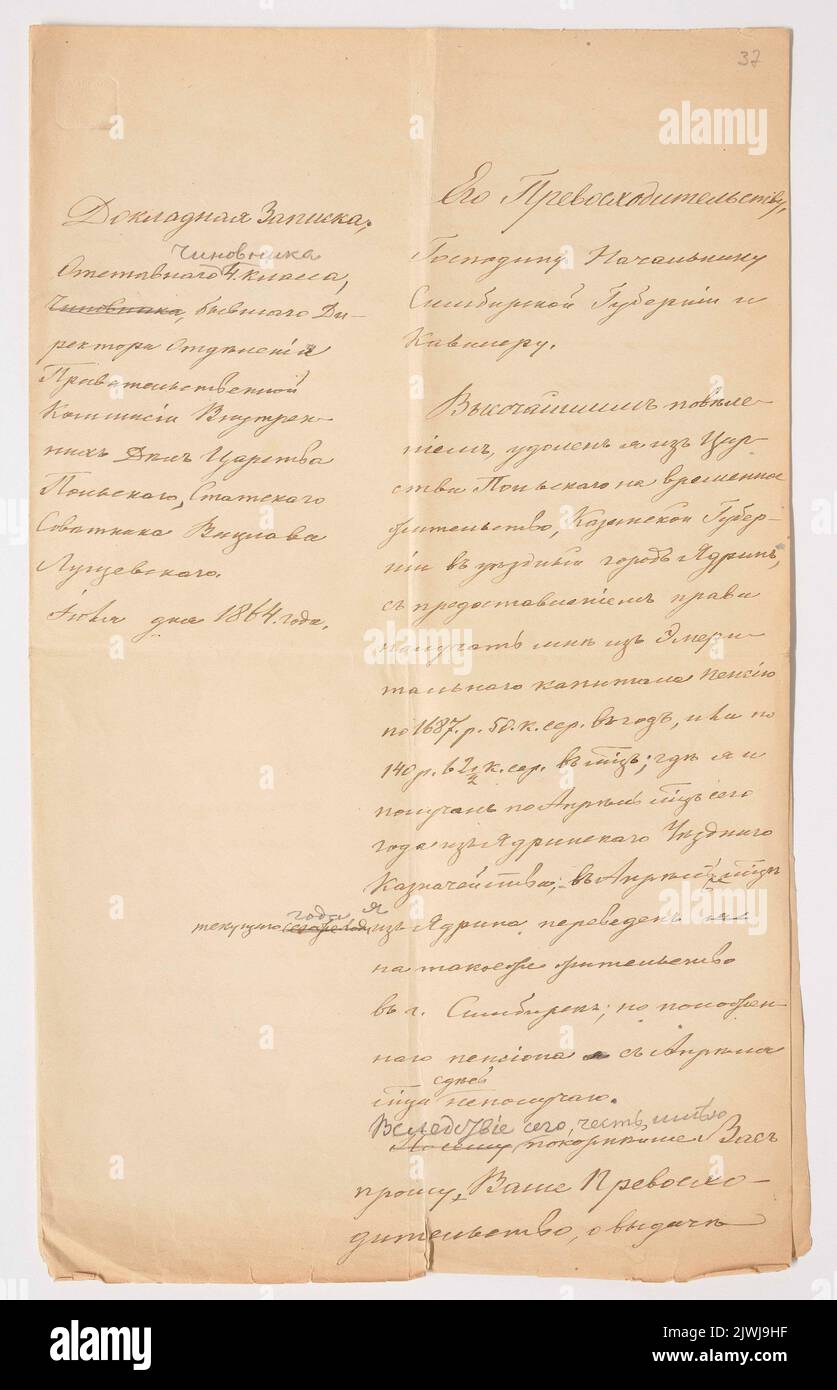 37
Докладная Записка,
чиновника
Отставного 4. класса,
чиновника, бывшаго Ди-
ректора Отделенія
Правительственной
Коммисіи Внутрен-
нихъ Делъ Царства
Польскаго, Статскаго
Советника Вацлава
Лущевскаго.
Іюля дня 1864. года.
Его Превосходительству,
Господину Начальнику
Симбирской Губерніи и
Кавалеру.
Высочайшимъ повеле-
ніемъ, удаленъ я изъ Цар-
ства Польскаго на временное
жительство, Казанской Губер-
ніи въ уездный городъ Ядринъ,
съ предоставленіемъ права
получать мне изъ Эмери-
тальнаго капитала пенсію
по 1687. р. 50. к. сер. въ годъ, или по
140 р. 62½ к. сер. въ м̃цъ; где я и
получалъ по Апрель м̃цъ сего
года изъ Ядринскаго Уезднаго
Казначейства; въ Апреле м̃це
текущаго года я изъ Ядрина переведенъ
на такое же жительство
въ г. Симбирскъ; но положен-
наго пенсіона съ Апреля
м̃ца здесь неполучаю.
Вследствіе сего, честь имею
По сему покорнейше Васъ
прошу, Ваше Превосхо-
дительство, о выдаче
alamy
Image ID: 2JWJ9HF
www.alamy.com